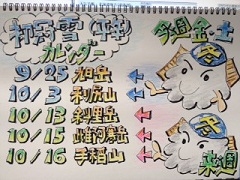 初冠雪(平年)
カレンダー
今週金・土
9/25 旭岳
10/3 利尻山
10/13 斜里岳
10/15 雌阿寒岳
10/16 手稲山
来週